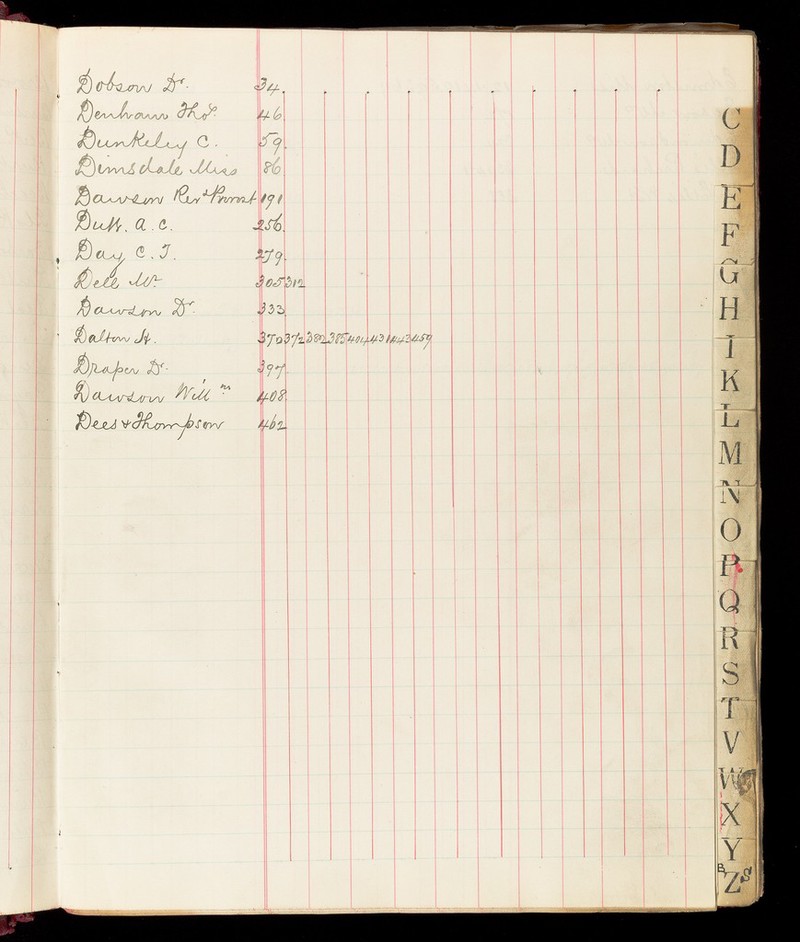 Dobson Dr. 34.
Denham Thos. 46
Dunkeley C. 59.
Dimsdale Miss 86
Dawson Revd Provost 191
Duff. A. C. 256.
Day C. J. 279.
Dell Mr 305 312
Dawson Dr. 333
Dalton H. 370 372 382 385 404 431 442 459
Draper Dr. 397
Dawson Willm 408.
Dees & Thompson 462
C
D
E
F
G
H
I
K
L
M
N
O
P
Q
R
S
T
V
W
X
Y
Z